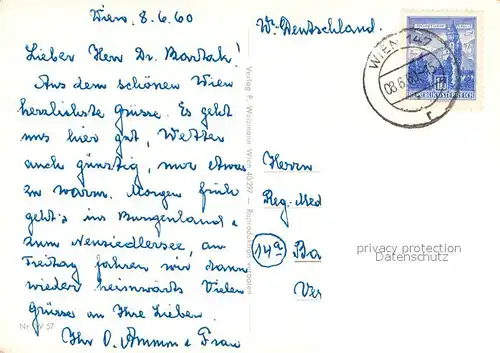 Wien, 8.6.60
Lieber Herr Dr. Bartak!
Aus dem schönen Wien
herzlichste Grüsse. Es geht
uns hier gut, Wetter
auch günstig, nur etwas
zu warm. Morgen früh
geht's ins Burgenland,
zum Neusiedlersee, am
Freitag fahren wir dann
wieder heimwärts. Viele
Grüsse an Ihre Lieben.
Ihr O. Ammon & Frau
Nr. W 57
Verlag P. Weizmann Wien 49297 — Reproduktion verboten
W. Deutschland.
WIEN 147
08.6.60
r
REPUBLIK ÖSTERREICH
Herrn
Reg. Med
14a Ba
Ver
privacy protection
Datenschutz